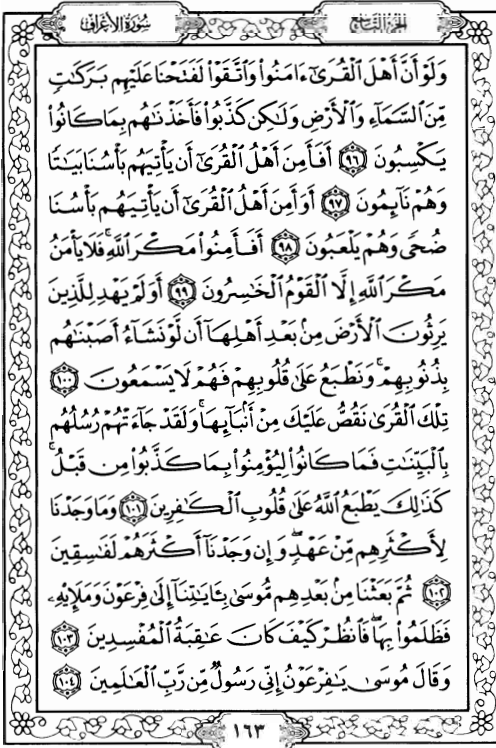 الجزء التاسع
سورة الأعراف
وَلَوْ أَنَّ أَهْلَ ٱلْقُرَىٰٓ ءَامَنُوا۟ وَٱتَّقَوْا۟ لَفَتَحْنَا عَلَيْهِم بَرَكَٰتٍ
مِّنَ ٱلسَّمَآءِ وَٱلْأَرْضِ وَلَٰكِن كَذَّبُوا۟ فَأَخَذْنَٰهُم بِمَا كَانُوا۟
يَكْسِبُونَ ٩٦ أَفَأَمِنَ أَهْلُ ٱلْقُرَىٰٓ أَن يَأْتِيَهُم بَأْسُنَا بَيَٰتًا
وَهُمْ نَآئِمُونَ ٩٧ أَوَأَمِنَ أَهْلُ ٱلْقُرَىٰٓ أَن يَأْتِيَهُم بَأْسُنَا
ضُحًى وَهُمْ يَلْعَبُونَ ٩٨ أَفَأَمِنُوا۟ مَكْرَ ٱللَّهِ ۚ فَلَا يَأْمَنُ
مَكْرَ ٱللَّهِ إِلَّا ٱلْقَوْمُ ٱلْخَٰسِرُونَ ٩٩ أَوَلَمْ يَهْدِ لِلَّذِينَ
يَرِثُونَ ٱلْأَرْضَ مِنۢ بَعْدِ أَهْلِهَآ أَن لَّوْ نَشَآءُ أَصَبْنَٰهُم
بِذُنُوبِهِمْ ۚ وَنَطْبَعُ عَلَىٰ قُلُوبِهِمْ فَهُمْ لَا يَسْمَعُونَ ١٠٠
تِلْكَ ٱلْقُرَىٰ نَقُصُّ عَلَيْكَ مِنْ أَنۢبَآئِهَا ۚ وَلَقَدْ جَآءَتْهُمْ رُسُلُهُم
بِٱلْبَيِّنَٰتِ فَمَا كَانُوا۟ لِيُؤْمِنُوا۟ بِمَا كَذَّبُوا۟ مِن قَبْلُ ۚ
كَذَٰلِكَ يَطْبَعُ ٱللَّهُ عَلَىٰ قُلُوبِ ٱلْكَٰفِرِينَ ١٠١ وَمَا وَجَدْنَا
لِأَكْثَرِهِم مِّنْ عَهْدٍ ۖ وَإِن وَجَدْنَآ أَكْثَرَهُمْ لَفَٰسِقِينَ
١٠٢ ثُمَّ بَعَثْنَا مِنۢ بَعْدِهِم مُّوسَىٰ بِـَٔايَٰتِنَآ إِلَىٰ فِرْعَوْنَ وَمَلَإِيْهِۦ
فَظَلَمُوا۟ بِهَا ۖ فَٱنظُرْ كَيْفَ كَانَ عَٰقِبَةُ ٱلْمُفْسِدِينَ ١٠٣
وَقَالَ مُوسَىٰ يَٰفِرْعَوْنُ إِنِّى رَسُولٌ مِّن رَّبِّ ٱلْعَٰلَمِينَ ١٠٤
١٦٣